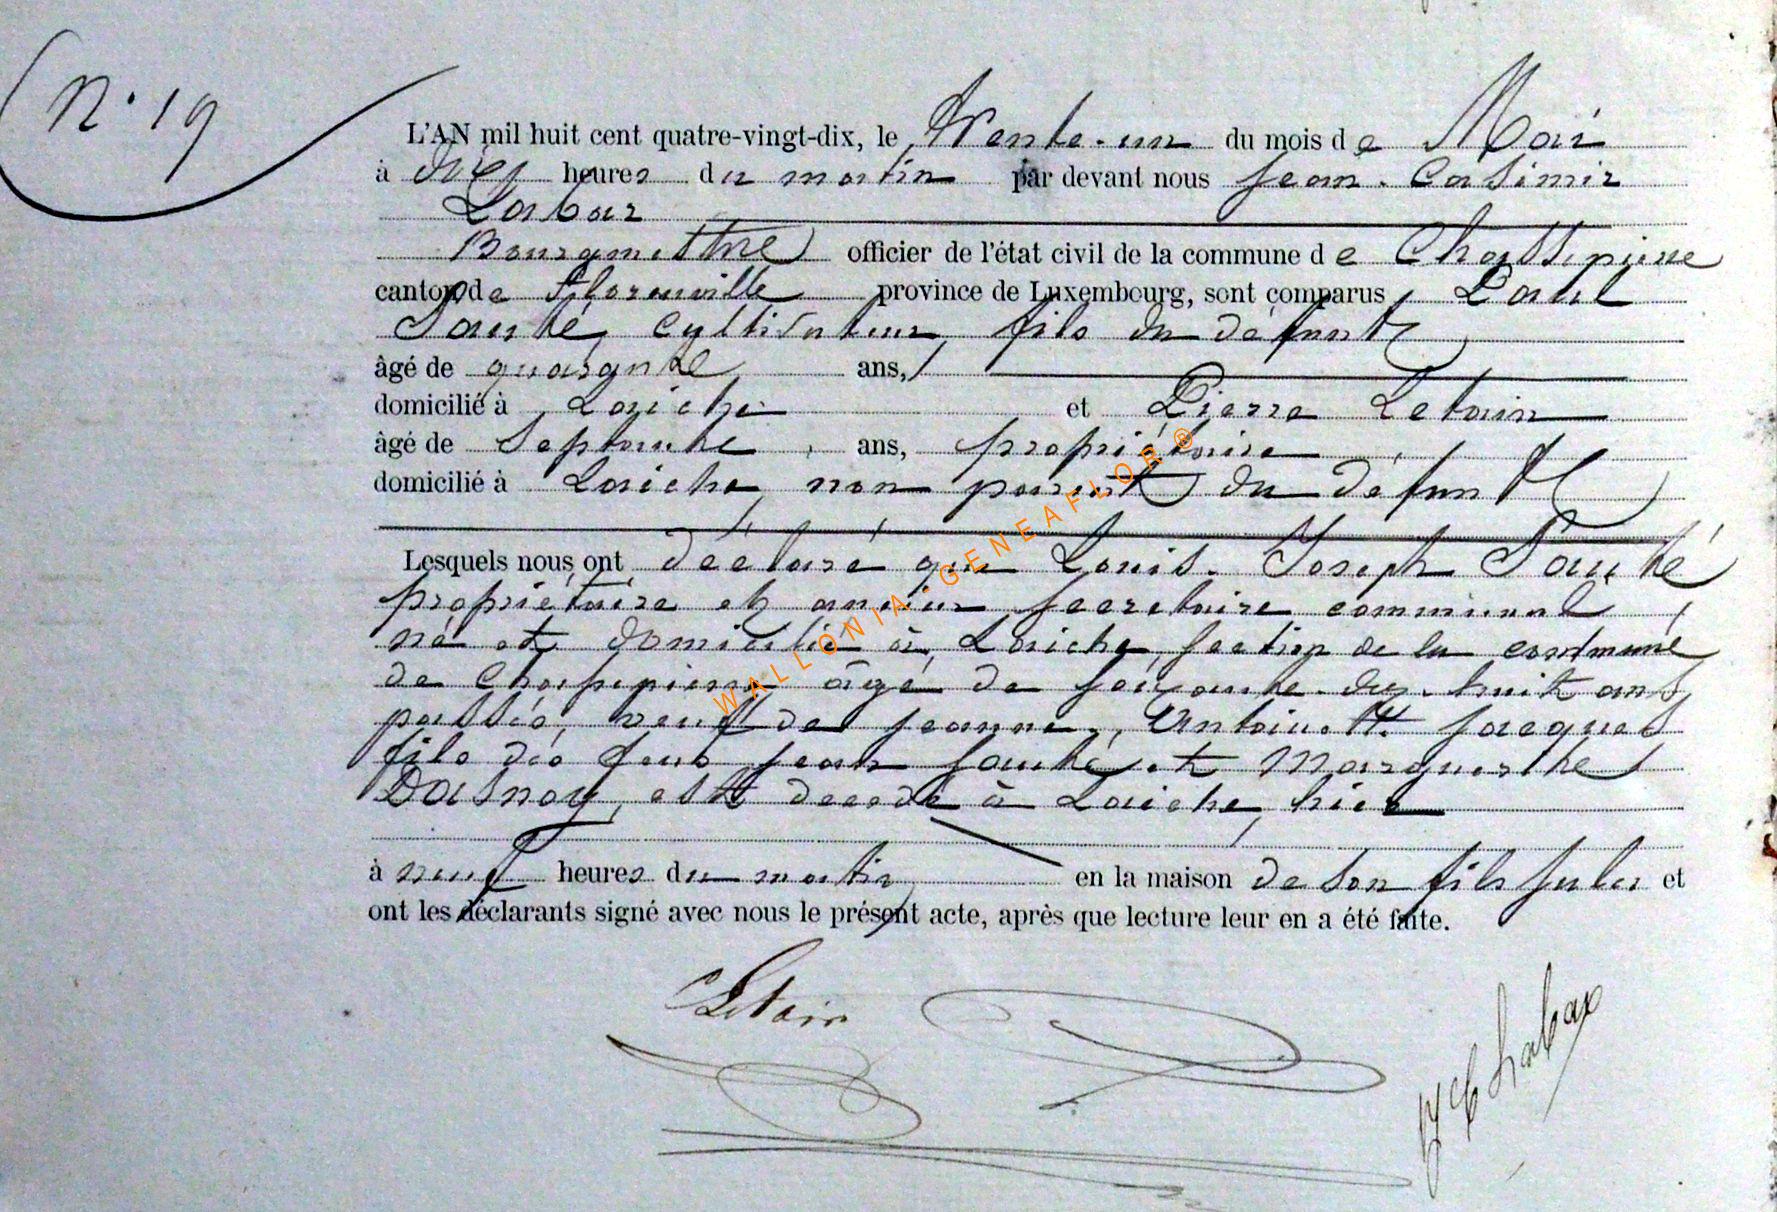 N° 19
L'AN mil huit cent quatre-vingt-dix, le Trente-un du mois de Mai
à dix heures du matin par devant nous Jean-Casimir
Labar
Bourgmestre officier de l'état civil de la commune de Chassepierre
canton de Florenville province de Luxembourg, sont comparus Paul
Santé, cultivateur, fils du défunt
âgé de quarante ans,
domicilié à Laiche et Pierre Letain
âgé de septante ans, propriétaire
domicilié à Laiche, non parent du défunt
Lesquels nous ont déclaré que Louis-Joseph Santé
propriétaire et ancien secrétaire communal,
né et domicilié à Laiche, section de la commune
de Chassepierre âgé de soixante-dix-huit ans
passés, veuf de Jeanne, Antoinette Jacques
fils des feus Jean Santé et Marguerite
Dasnoy, est décédé à Laiche, hier
à neuf heures du matin, en la maison de son fils Jules et
ont les déclarants signé avec nous le présent acte, après que lecture leur en a été faite.
Letain
J C Labar
WALLONIA-GENEAFLOR®